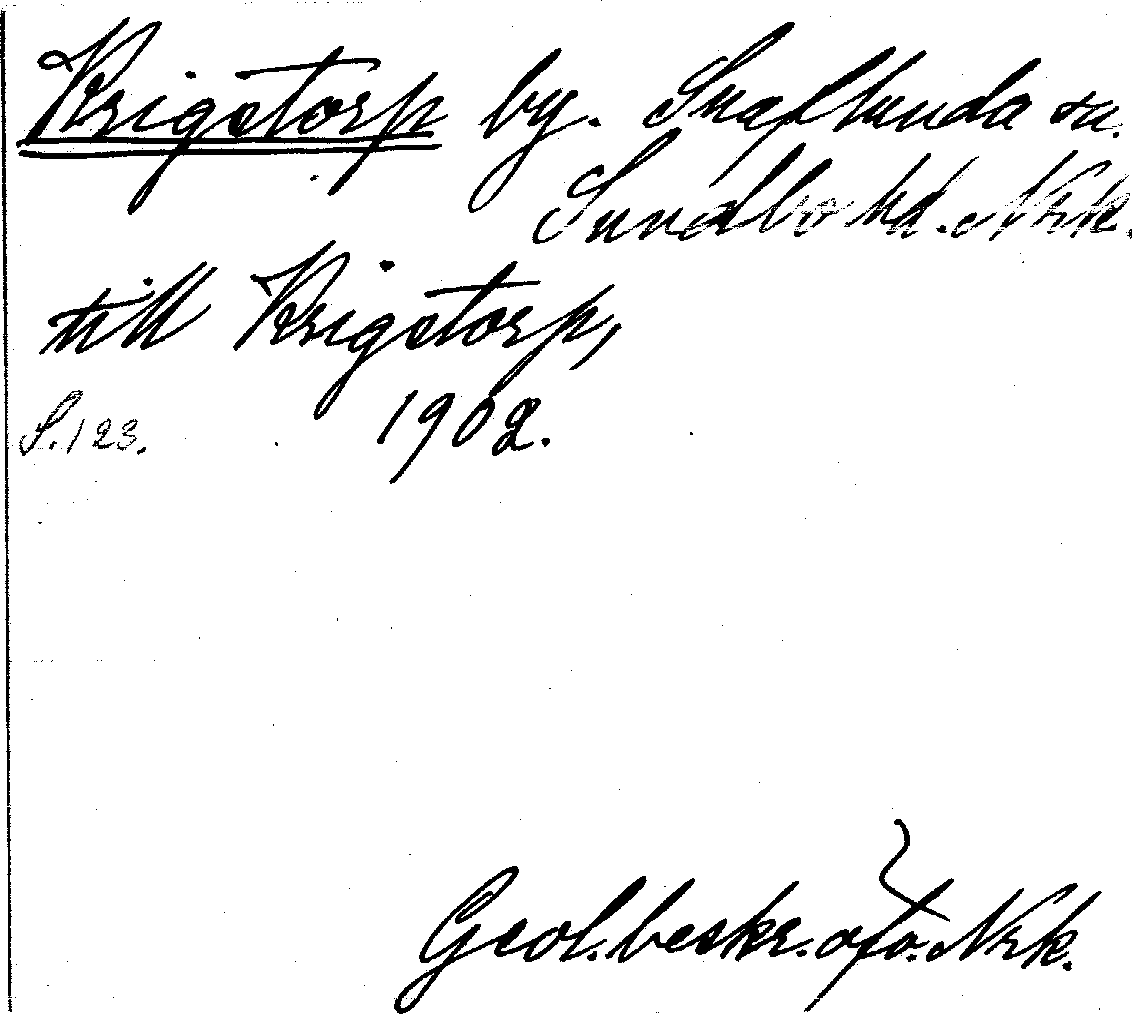 Krigstorp by. Snaflunda sn.
Sundbo hd. Nrk.
till Krigstorp,
S. 123. 1902.
Geol. beskr. öfv. Nrk.